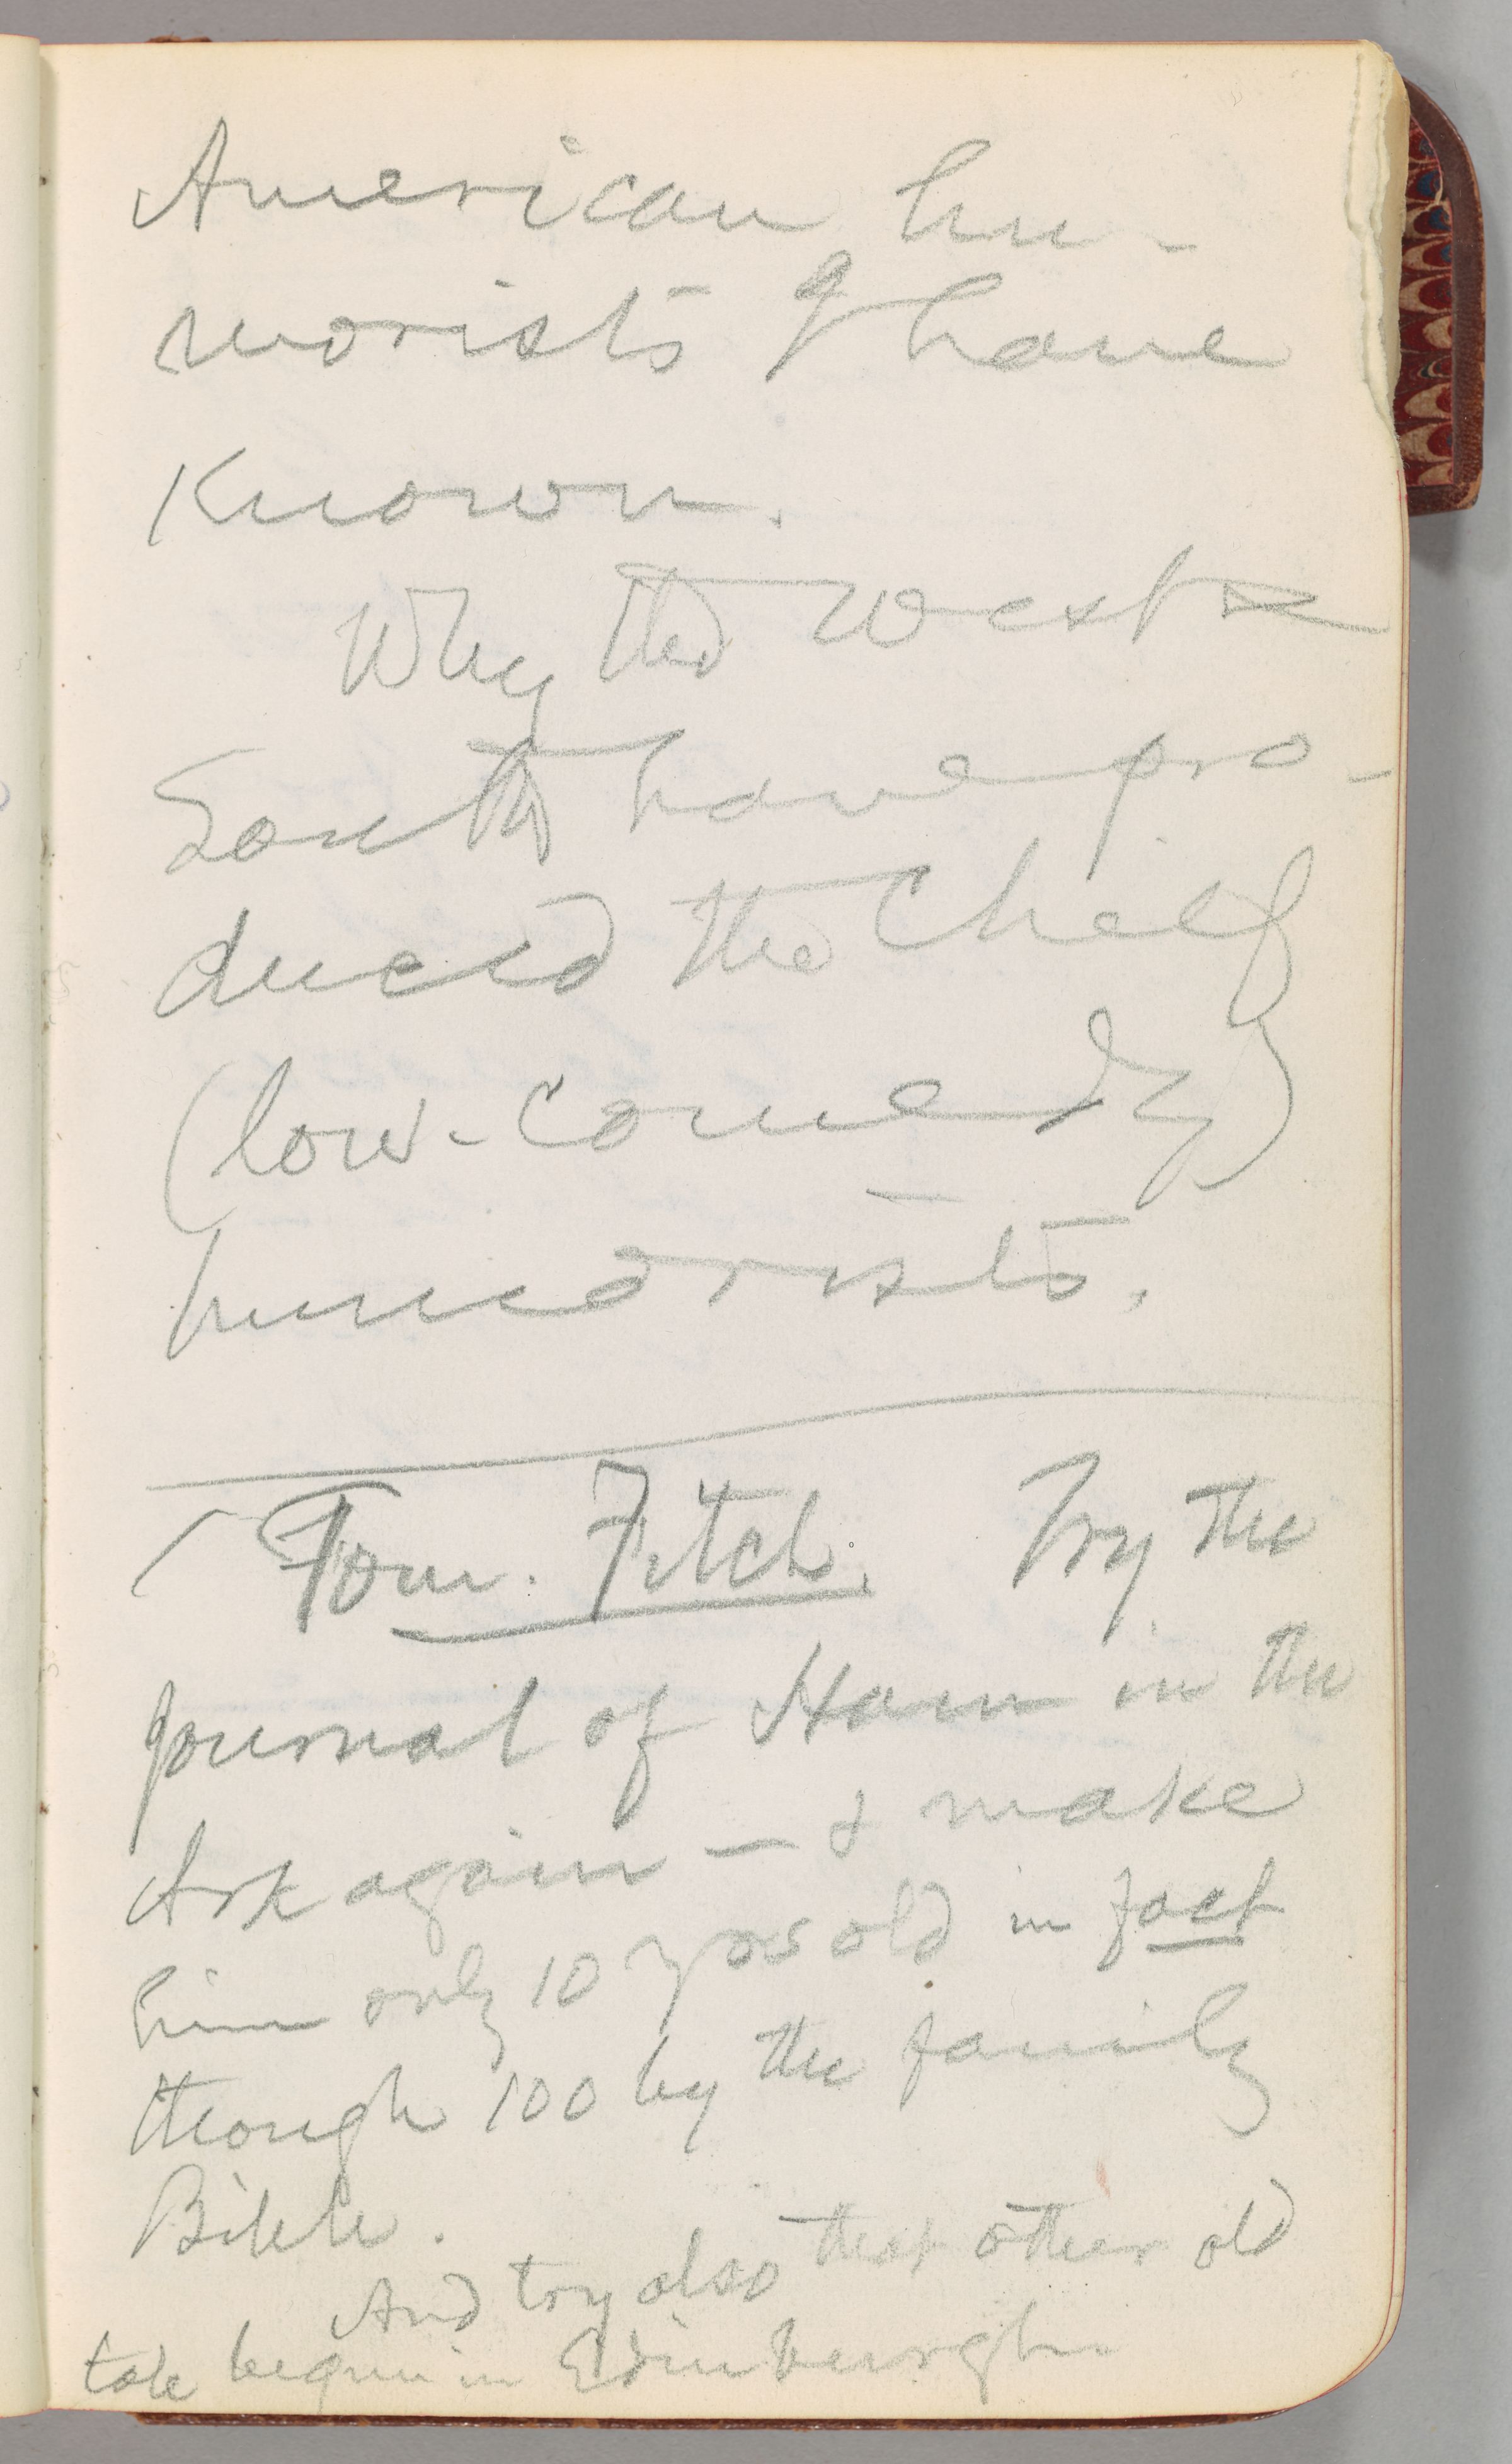 American hu-
morists I have
known.
Why the West &
South have pro-
duced the chief
(low-comedy)
humorists.
Tom. Fitch. Try the
journal of Ham in the
Ark again — & make
him only 10 yrs old in fact
though 100 by the family
Bible.
And try also that other old
tale begun in Edinburgh